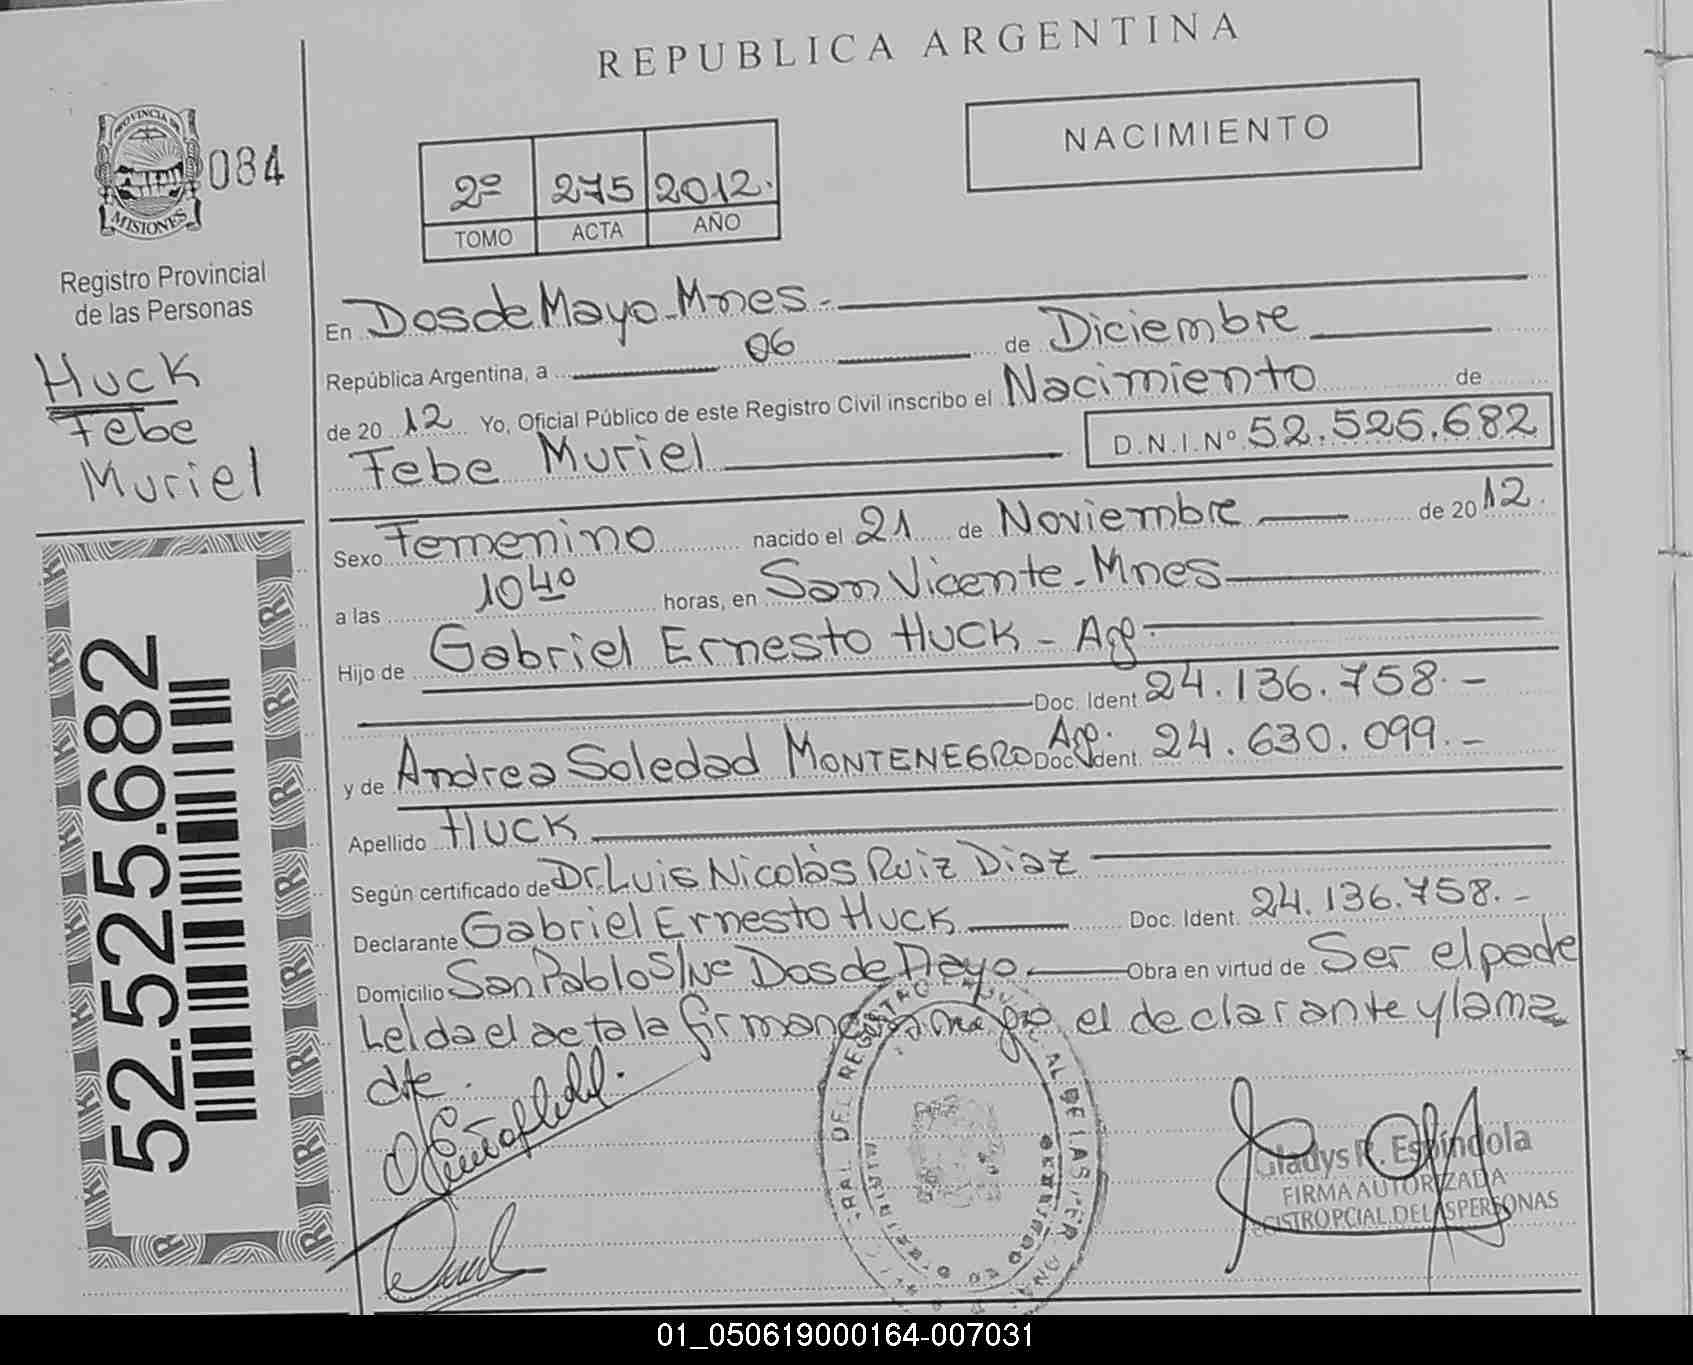 REPUBLICA ARGENTINA
PROVINCIA DE
MISIONES
084
Registro Provincial
de las Personas
NACIMIENTO
2º 275 2012.
TOMO ACTA AÑO
Huck
Febe
Muriel
52.525.682
En Dos de Mayo - Mnes.-
República Argentina, a 06 de Diciembre
de 20 12 Yo, Oficial Público de este Registro Civil inscribo el Nacimiento de
Febe Muriel D.N.I.Nº 52.525.682
Sexo Femenino nacido el 21 de Noviembre de 20 12.
a las 10 40 horas, en San Vicente - Mnes
Hijo de Gabriel Ernesto HUCK - Arg.
Doc. Ident 24.136.758.-
y de Andrea Soledad MONTENEGRO Arg. Doc. Ident. 24.630.099.-
Apellido HUCK
Según certificado de Dr. Luis Nicolás Ruiz Diaz
Declarante Gabriel Ernesto HUCK Doc. Ident. 24.136.758.-
Domicilio San Pablo S/Nº Dos de Mayo Obra en virtud de Ser el padre
Leída el acta la firman el declarante y la ma
dre.
Gladys R. Espíndola
FIRMA AUTORIZADA
PCIAL. DE LAS PERSONAS
01_050619000164-007031